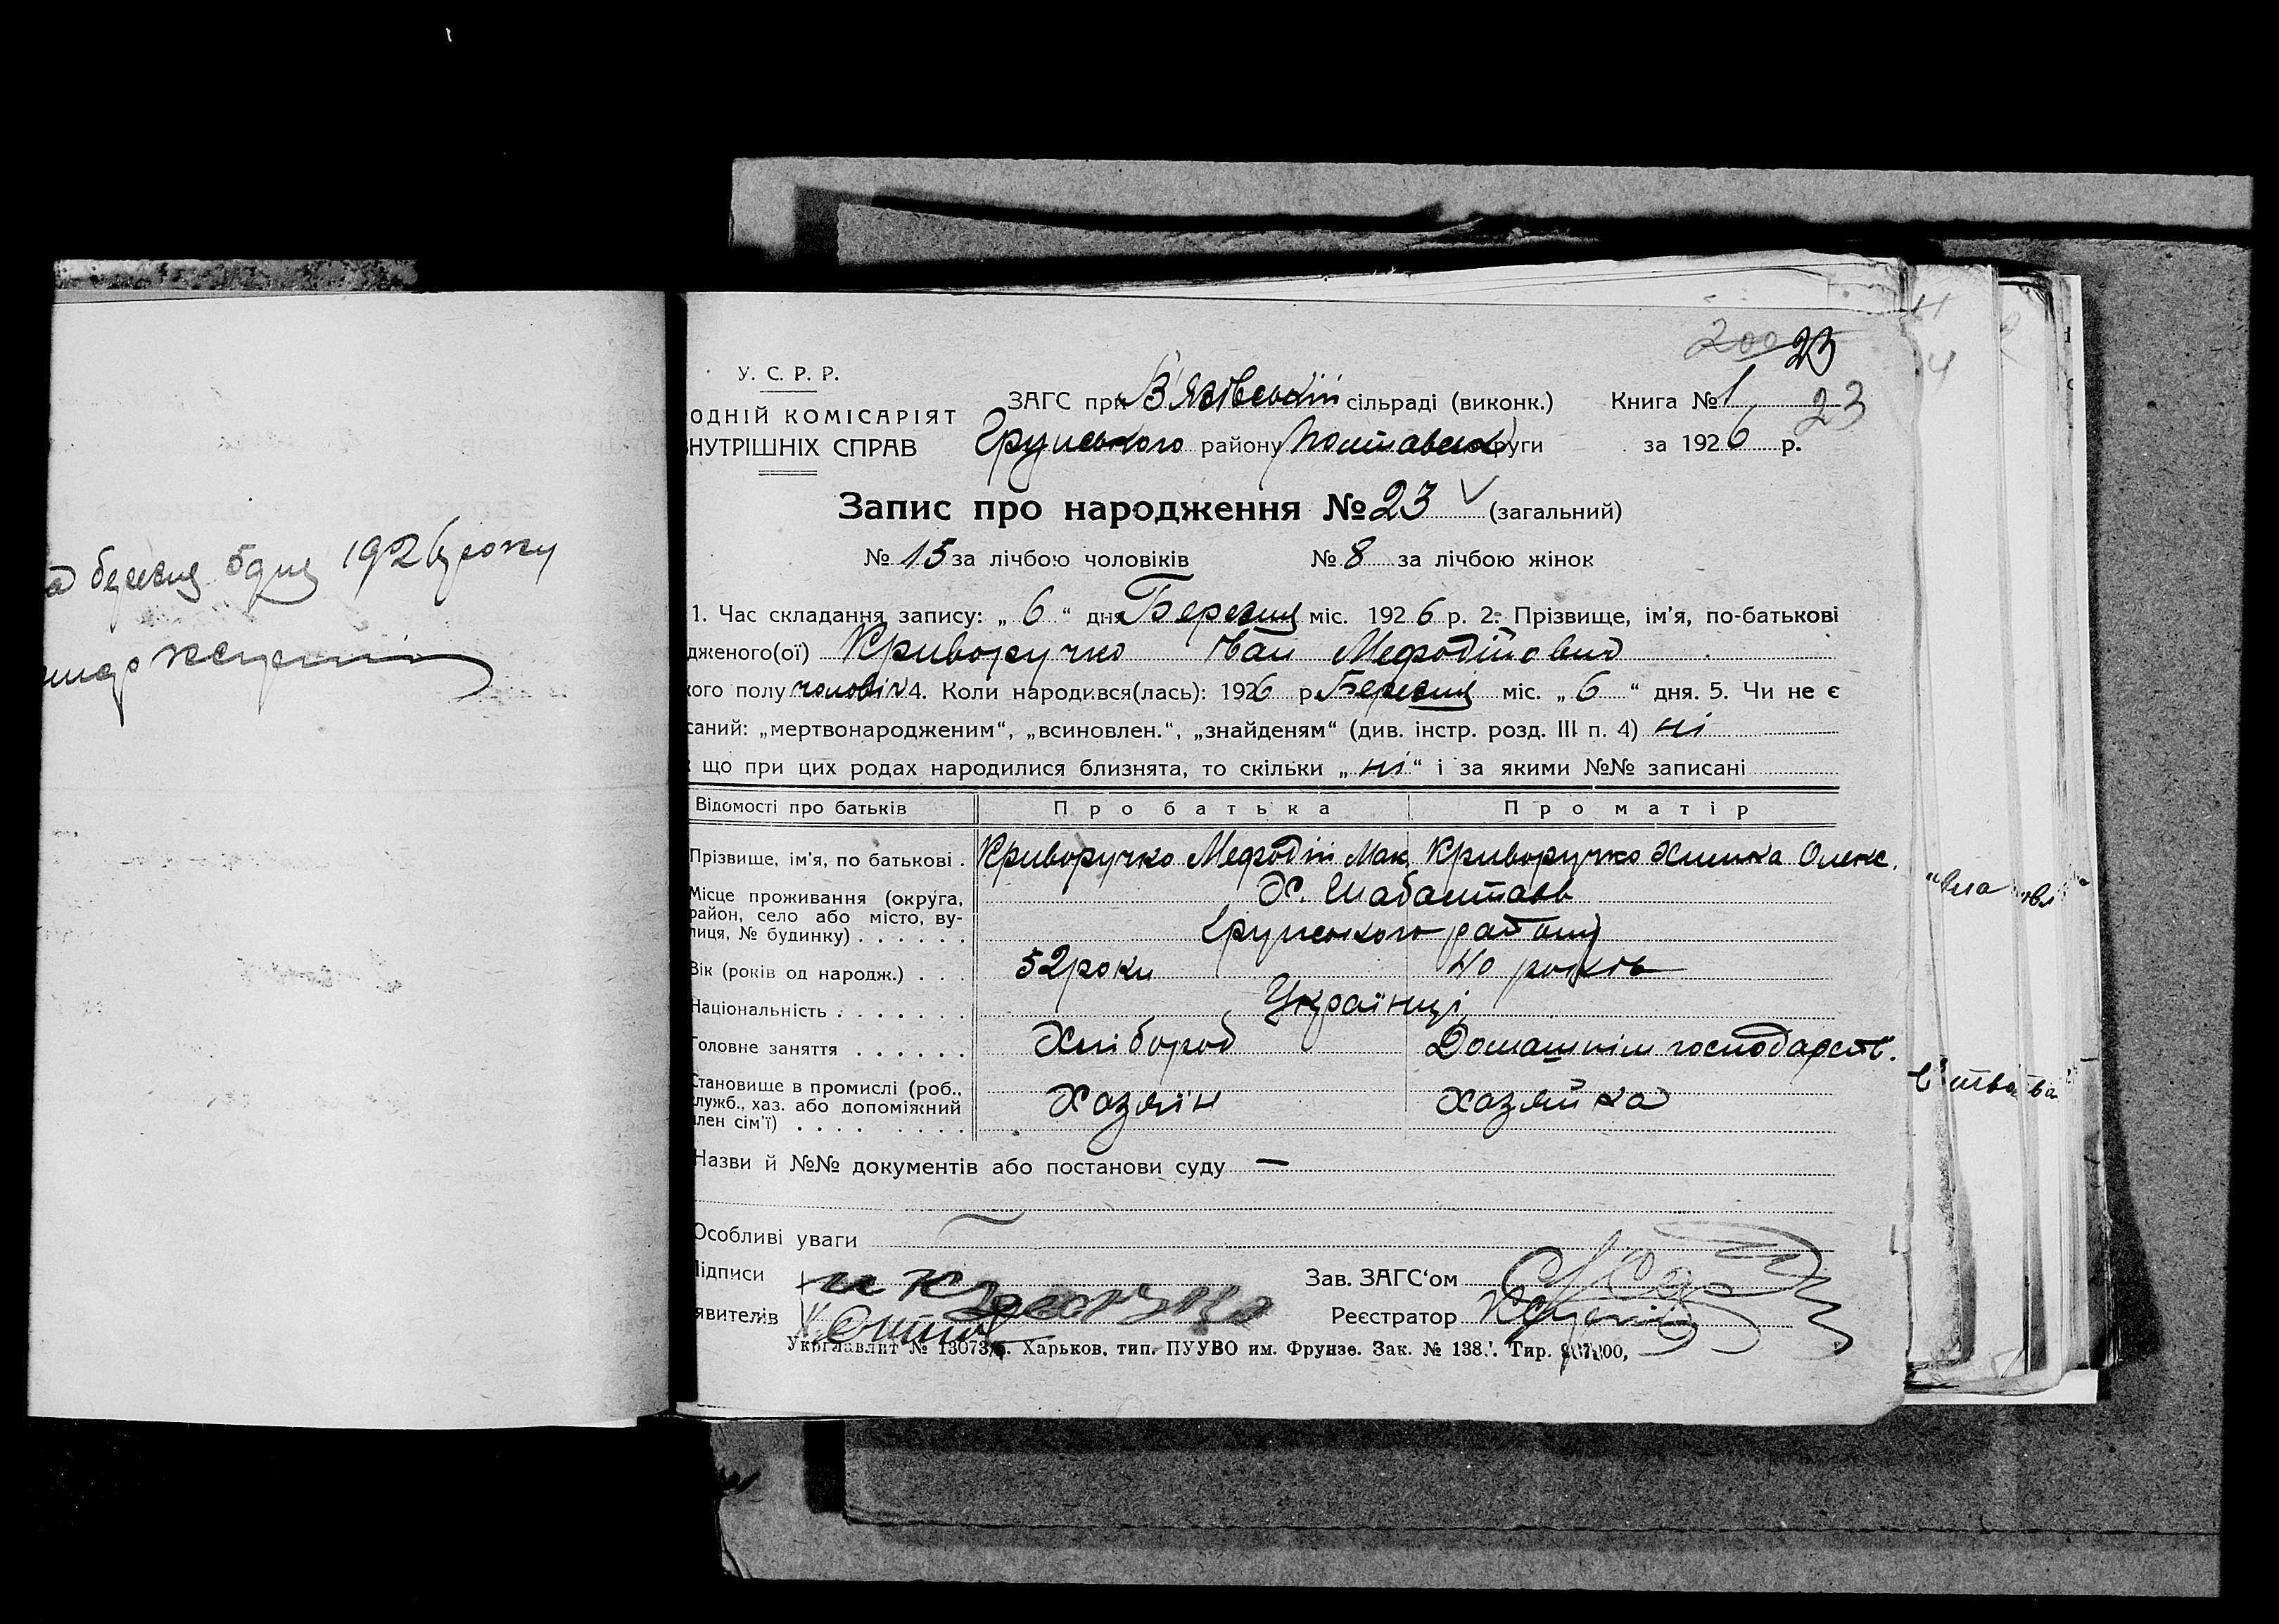 бережня 5 дня 1926 року
200 23
У. С. Р. Р.
ЗАГС при В'язівській сільраді (виконк.) Книга № 1 23
ОДНІЙ КОМІСАРІЯТ
НУТРІШНІХ СПРАВ Грунського району Полтавськ руги за 1926 р.
Запис про народження № 23 (загальний)
№ 15 за лічбою чоловіків № 8 за лічбою жінок
1. Час складання запису: „ 6 “ дня Березня міс. 1926 р. 2. Прізвище, ім'я, по-батькові
дженого(ої) Криворучко Іван Мефодійович
кого полу чоловіч 4. Коли народився(лась): 1926 р. Березня міс. „ 6 “ дня. 5. Чи не є
саний: „мертвонародженим“, „всиновлен.“, „знайденям“ (див. інстр. розд. III п. 4) ні
що при цих родах народилися близнята, то скільки „ ні “ і за якими №№ записані
Відомості про батьків Про батька Про матір
Прізвище, ім'я, по батькові . Криворучко Мефодій Мак. Криворучко Химка Олекс.
Місце проживання (округа, район, село або місто, вулиця, № будинку) . . . . . . Х. Шабалтаєв
Грунського району
Вік (років од народж.) . . . 52 роки 40 років
Національність . . . . . . . Українці
Головне заняття . . . . . . Хлібороб Домашнім господарств.
Становище в промислі (роб., служб., хаз. або допоміжний
член сім'ї) . . . . . . . . Хазяїн Хазяйка
Назви й №№ документів або постанови суду —
Особливі уваги
Підписи Зав. ЗАГС'ом
явителів Реєстратор
Укрглавліт № 13073/б. Харьков, тип. ПУУВО им. Фрунзе. Зак. № 138 Тир.